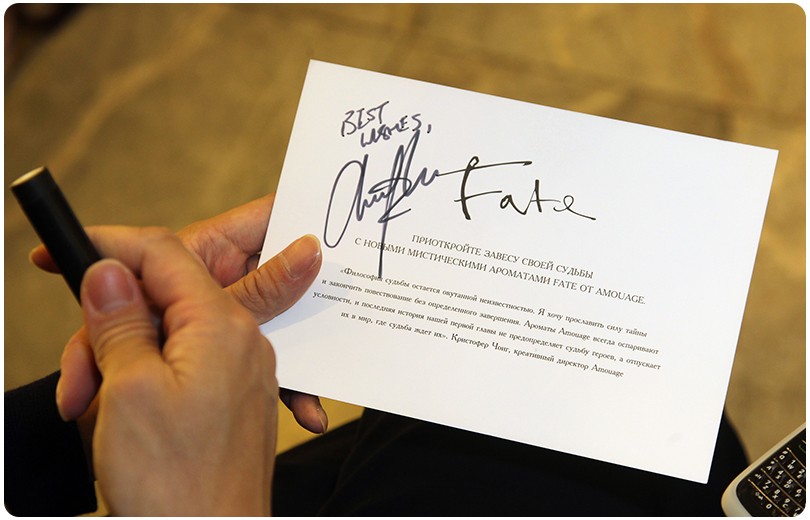 BEST
WISHES,
Fate
ПРИОТКРОЙТЕ ЗАВЕСУ СВОЕЙ СУДЬБЫ
С НОВЫМИ МИСТИЧЕСКИМИ АРОМАТАМИ FATE ОТ AMOUAGE.
«Философия судьбы остается окутанной неизвестностью. Я хочу прославить силу тайны
и закончить повествование без определенного завершения. Ароматы Amouage всегда оспаривают
условности, и последняя история нашей первой главы не предопределяет судьбу героев, а отпускает
их в мир, где судьба ждет их». Кристофер Чонг, креативный директор Amouage